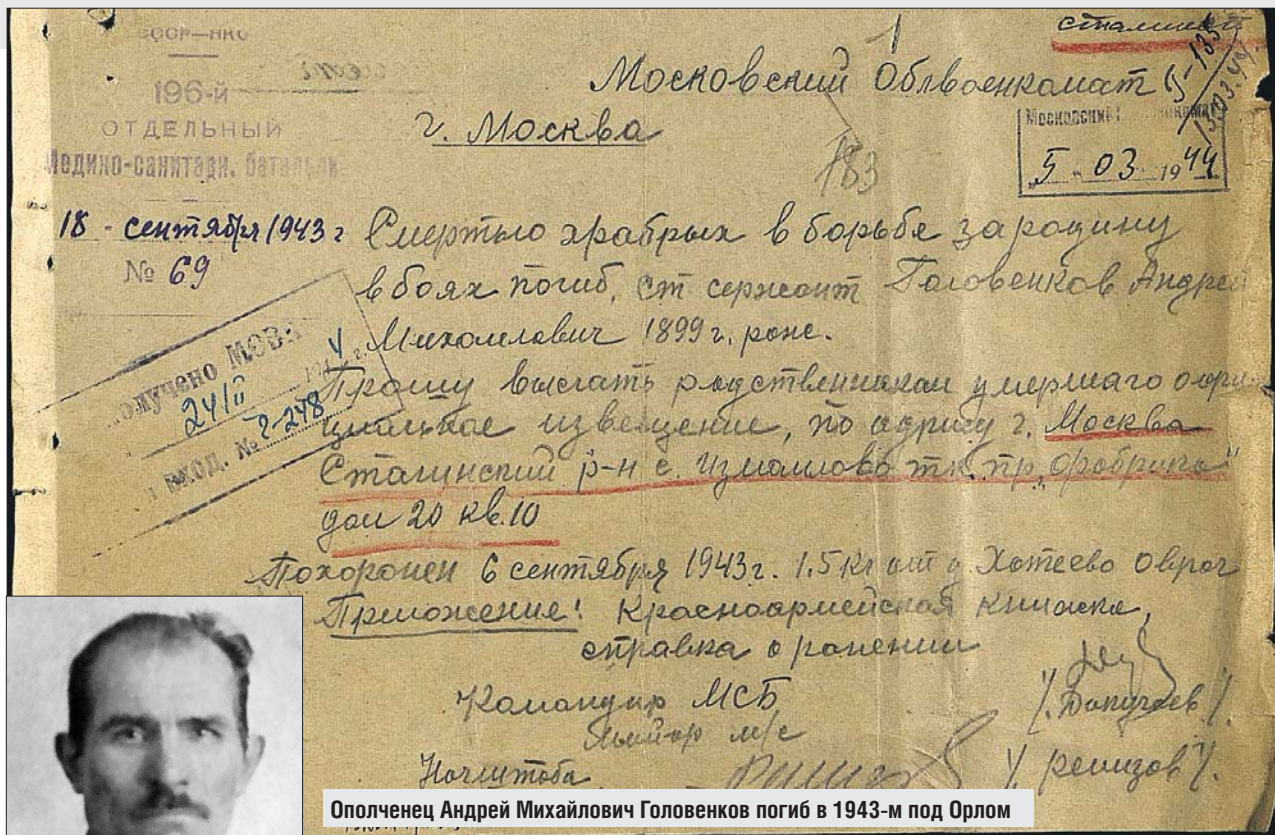 СССР—НКО
196-й
ОТДЕЛЬНЫЙ
Медико-санитарн. батальон
18 - сентября 1943 г
№ 69
1
Сталинск
Московский Облвоенкомат
г. Москва
183
Московский
5 03 1944
Получено МОВК
24/II 1944 г.
ВХОД. № 2-248
Смертью храбрых в борьбе за родину
в боях погиб, ст сержант Головенков Андрей
Михаилович 1899 г. рожд.
Прошу выслать родственникам умершаго офи
циальное извещение, по адресу г. Москва
Сталинский р-н с. Измаилово тк. пр. „Фабрика"
дом 20 кв. 10
Похоронен 6 сентября 1943 г. 1.5 км от д. Хотеево овраг
Приложение: Красноармейская книжка,
справка о ранении
Командир МСБ
Майор м/с
Начштаба /Ремизов/.
Ополченец Андрей Михайлович Головенков погиб в 1943-м под Орлом